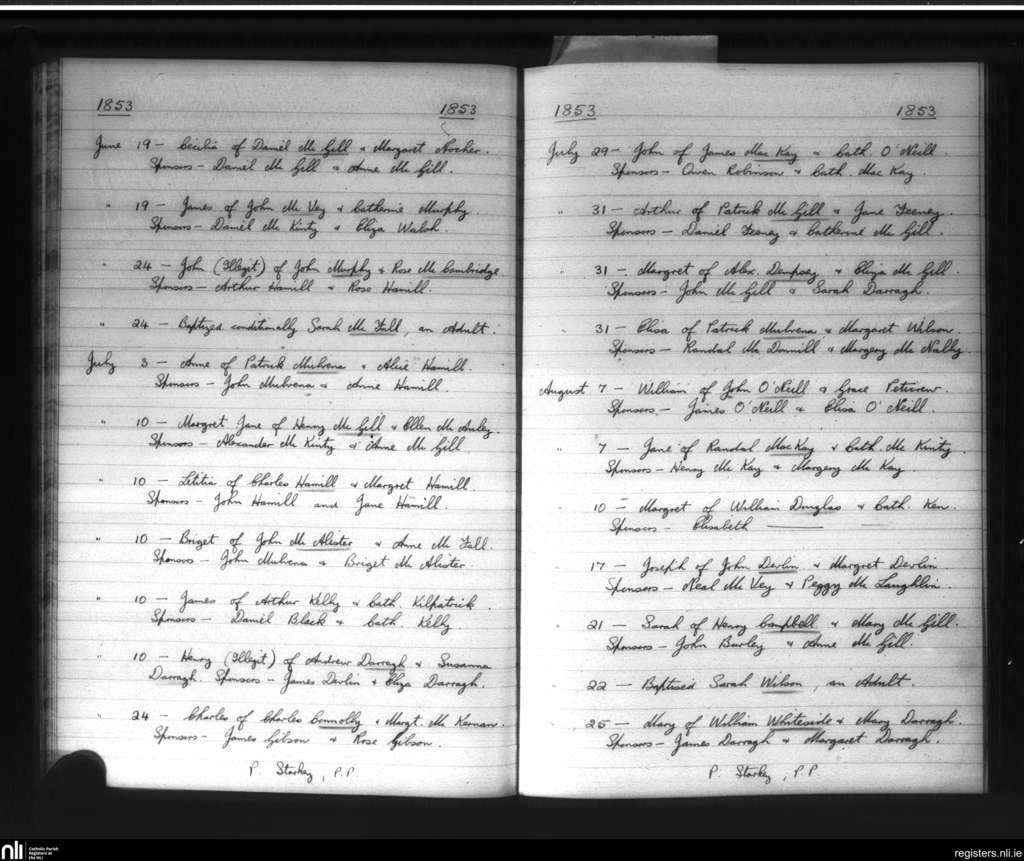 1853 1853
June 19 - Cecilia of Daniel Mc Gill & Margaret Archer.
Sponsors - Daniel Mc Gill & Anne Mc Gill.
" 19 - James of John Mc Vey & Catherine Murphy.
Sponsors - Daniel Mc Kinty & Eliza Walsh.
" 24 - John (Illegit) of John Murphy & Rose Mc Cambridge
Sponsors - Arthur Hamill & Rose Hamill.
" 24 - Baptized conditionally Sarah Mc Fall, an Adult.
July 3 - Anne of Patrick Mulvena & Alice Hamill.
Sponsors - John Mulvena & Anne Hamill.
" 10 - Margret Jane of Henry Mc Gill & Ellen Mc Auley.
Sponsors - Alexander Mc Kinty & Anne Mc Gill
" 10 - Letitia of Charles Hamill & Margret Hamill.
Sponsors - John Hamill and Jane Hamill.
" 10 - Briget of John Mc Alister & Anne Mc Fall.
Sponsors - John Mulvena & Briget Mc Alister
" 10 - James of Arthur Kelly & Cath. Kilpatrick.
Sponsors - Daniel Black & Cath. Kelly.
" 10 - Henry (Illegit) of Andrew Darragh & Susanna
Darragh. Sponsors - James Devlin & Eliza Darragh.
" 24 - Charles of Charles Connolly & Margt. Mc Kernan.
Sponsors - James Gibson & Rose Gibson.
P. Starkey, P.P
1853 1853
July 29 - John of James Mac Kay & Cath. O'Neill.
Sponsors - Owen Robinson & Cath. Mac Kay.
" 31 - Arthur of Patrick Mc Gill & Jane Feeney.
Sponsors - Daniel Feeney & Catherine Mc Gill.
" 31 - Margret of Alex. Dempsey & Eliza Mc Gill.
Sponsors - John Mc Gill & Sarah Darragh.
" 31 - Elisa of Patrick Mulvena & Margaret Wilson.
Sponsors - Randal Mc Donnill & Margery Mc Nally.
August 7 - William of John O'Neill & Grace
Sponsors - James O'Neill & Elisa O'Neill.
" 7 - Jane of Randal MacKay & Cath. Mc Kinty.
Sponsors - Henry Mc Kay & Margery Mc Kay.
" 10 - Margret of William Douglas & Cath. Ken.
Sponsors - Elisabeth ——
" 17 - Joseph of John Devlin & Margret Devlin.
Sponsors - Neal Mc Vey & Peggy Mc Laughlin.
" 21 - Sarah of Henry Campbell & Mary Mc Gill.
Sponsors - John Burley & Anne Mc Gill.
" 22 - Baptised Sarah Wilson, an Adult.
" 25 - Mary of William Whiteside & Mary Darragh.
Sponsors - James Darragh & Margaret Darragh.
P. Starkey, P.P.
nli Catholic Parish Registers at the NLI
registers.nli.ie